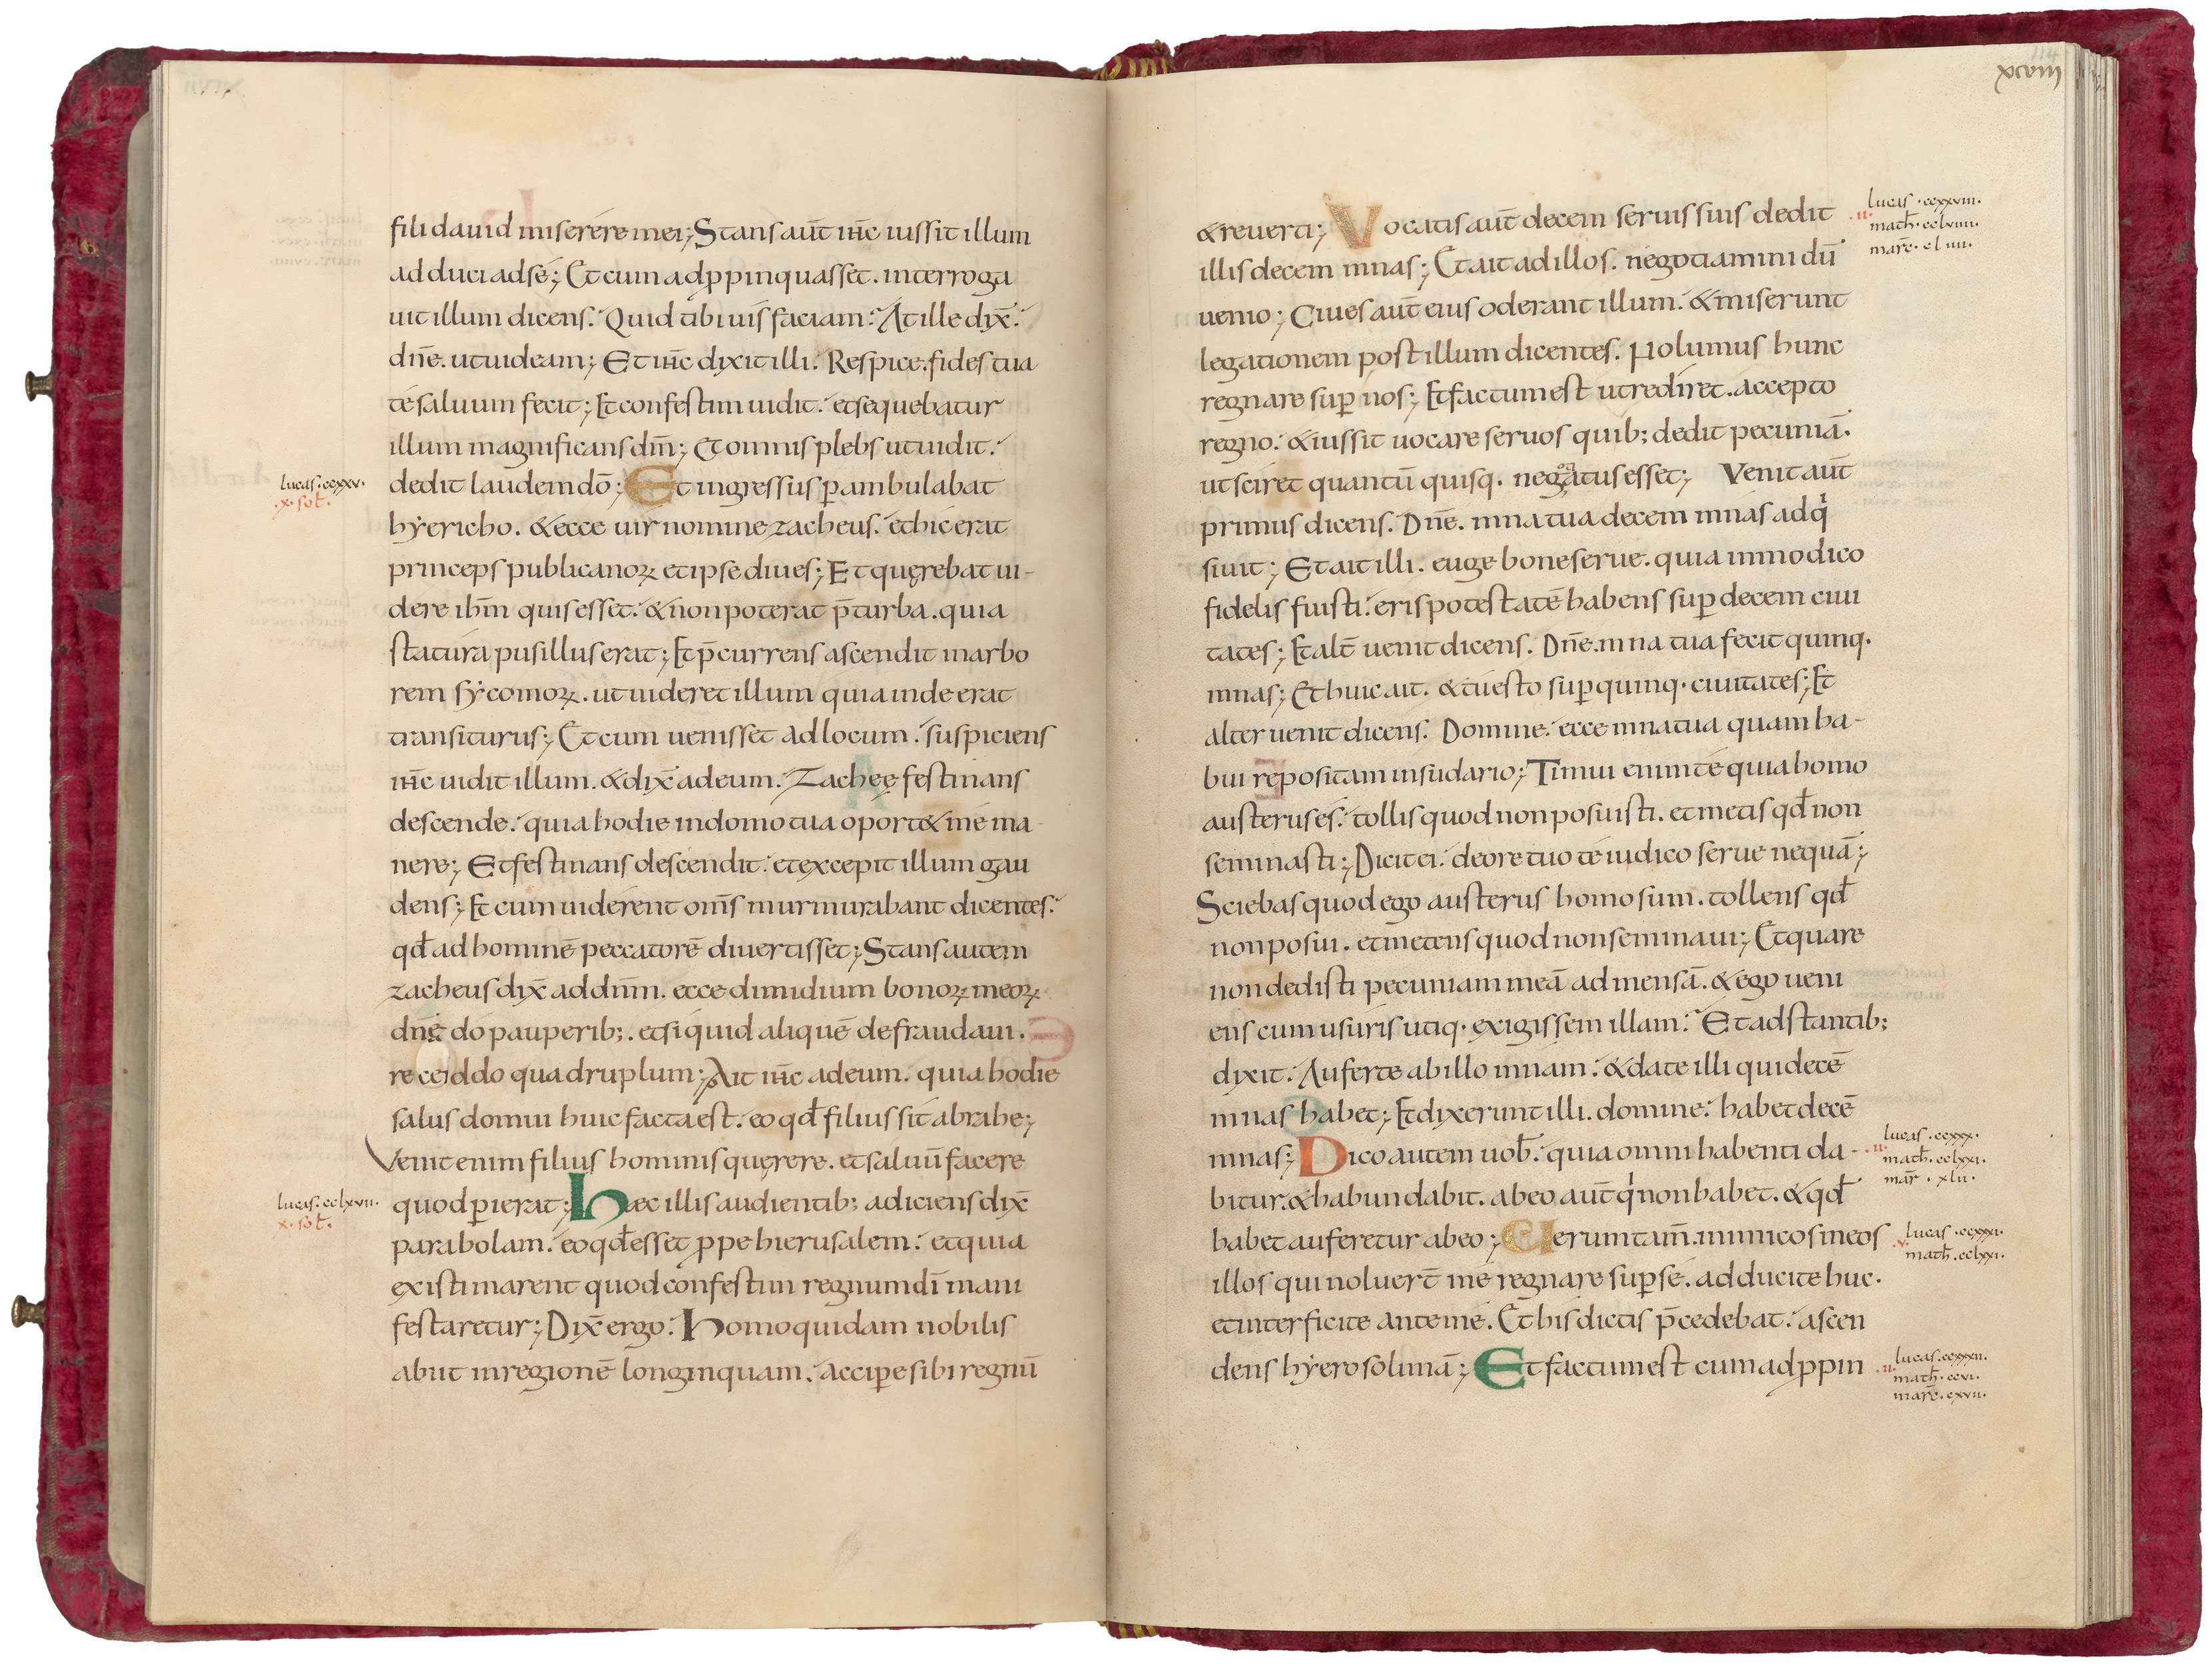 fili dauid miserere mei; Stans aut̄ ih̄c iussit illum
adduci ad se; Et cum adp̱pinquasset. interroga
uit illum dicens. Quid tibi uis faciam. At ille dix̄.
dn̄e. ut uideam; Et ih̄c dixit illi. Respice. fides tua
te saluum fecit; Et confestim uidit. et sequebatur
illum magnificans dm̄; Et omnis plebs ut uidit.
lucas. ccxxv.
.x. sol̄.
dedit laudem dō; Et ingressus ꝑambulabat
hẏericho. & ecce uir nomine zacheus. et hic erat
princeps publicanoꝝ et ipse diues; Et quęrebat ui-
dere ihm̄ quis esset. & non poterat p̄ turba. quia
statura pusillus erat; Et p̄currens ascendit in arbo
rem sẏcomoꝝ. ut uideret illum quia inde erat
transiturus; Et cum uenisset ad locum. suspiciens
ih̄c uidit illum. & dix̄ ad eum. Zachęę festinans
descende. quia hodie in domo tua oport& me ma
nere; Et festinans descendit. et excepit illum gau
dens; Et cum uiderent om̄s murmurabant dicentes.
qđ ad hominē peccatorē diuertisset; Stans autem
zacheus dix̄ ad dnm̄. ecce dimidium bonoꝝ meoꝝ
dn̄e do pauperib;. et si quid aliquē defraudaui.
reddo quadruplum; Ait ih̄c ad eum. quia hodie
salus domui huic facta est. eo qđ filius sit abrahe;
Venit enim filius hominis quęrere. et saluū facere
lucas. cclxvii.
x. sol̄.
quod ꝑierat; Haec illis audientib; adiciens dix̄
parabolam. eo qđ esset ꝓpe hierusalem. et quia
existimarent quod confestim regnum dī mani
festaretur; Dix̄ ergo. Homo quidam nobilis
abiit in regionē longinquam. acciꝑe sibi regnū
xcviii
& reuerti; Vocatis aut̄ decem seruis suis dedit
.ii.
lucas. ccxxviii.
math̄. cclxviiii.
marc̄. cliiii.
illis decem mnas; Et ait ad illos. negotiamini dū
uenio; Ciues aut̄ eius oderant illum. & miserunt
legationem post illum dicentes. Nolumus hunc
regnare suꝑ nos; Et factum est ut rediret. accepto
regno. & iussit uocare seruos quib; dedit pecuniā.
ut sciret quantū quisq. negotiatus esset; Venit aut̄
primus dicens. Dn̄e. mna tua decem mnas adqͥ
siuit; Et ait illi. euge bone serue. quia in modico
fidelis fuisti. eris potestatē habens suꝑ decem ciui
tates; Et alt̄ uenit dicens. Dn̄e. mna tua fecit quinq.
mnas; Et huic ait. & tu esto suꝑ quinq. ciuitates; Et
alter uenit dicens. Domine. ecce mna tua quam ha-
bui repositam in sudario; Timui enim te quia homo
austerus es. tollis quod non posuisti. et metis qđ non
seminasti; Dicit ei. de ore tuo te iudico serue nequā;
Sciebas quod ego austerus homo sum. tollens qđ
non posui. et metens quod non seminaui; Et quare
non dedisti pecuniam meā ad mensā. & ego ueni
ens cum usuris utiq. exigissem illam. Et adstantib;
dixit. Auferte ab illo mnam. & date illi qui decē
mnas habet; Et dixerunt illi. domine. habet decē
mnas; Dico autem uob̄. quia omni habenti da-
.ii.
lucas. ccxxx.
math̄. cclxxi.
mar̄. xlii.
bitur. & habundabit. ab eo aut̄ qͥ non habet. & qđ
habet auferetur ab eo; Uerumtam̄. inimicos meos
.v.
lucas. ccxxxi.
math̄. cclxxi.
illos qui noluer̄ me regnare suꝑ se. adducite huc.
et interficite ante me. Et his dictis p̄cedebat. ascen
dens hẏerosolimā; Et factum est cum adp̱pin
.ii.
lucas. ccxxxii.
math̄. ccvi.
marc̄. cxvii.